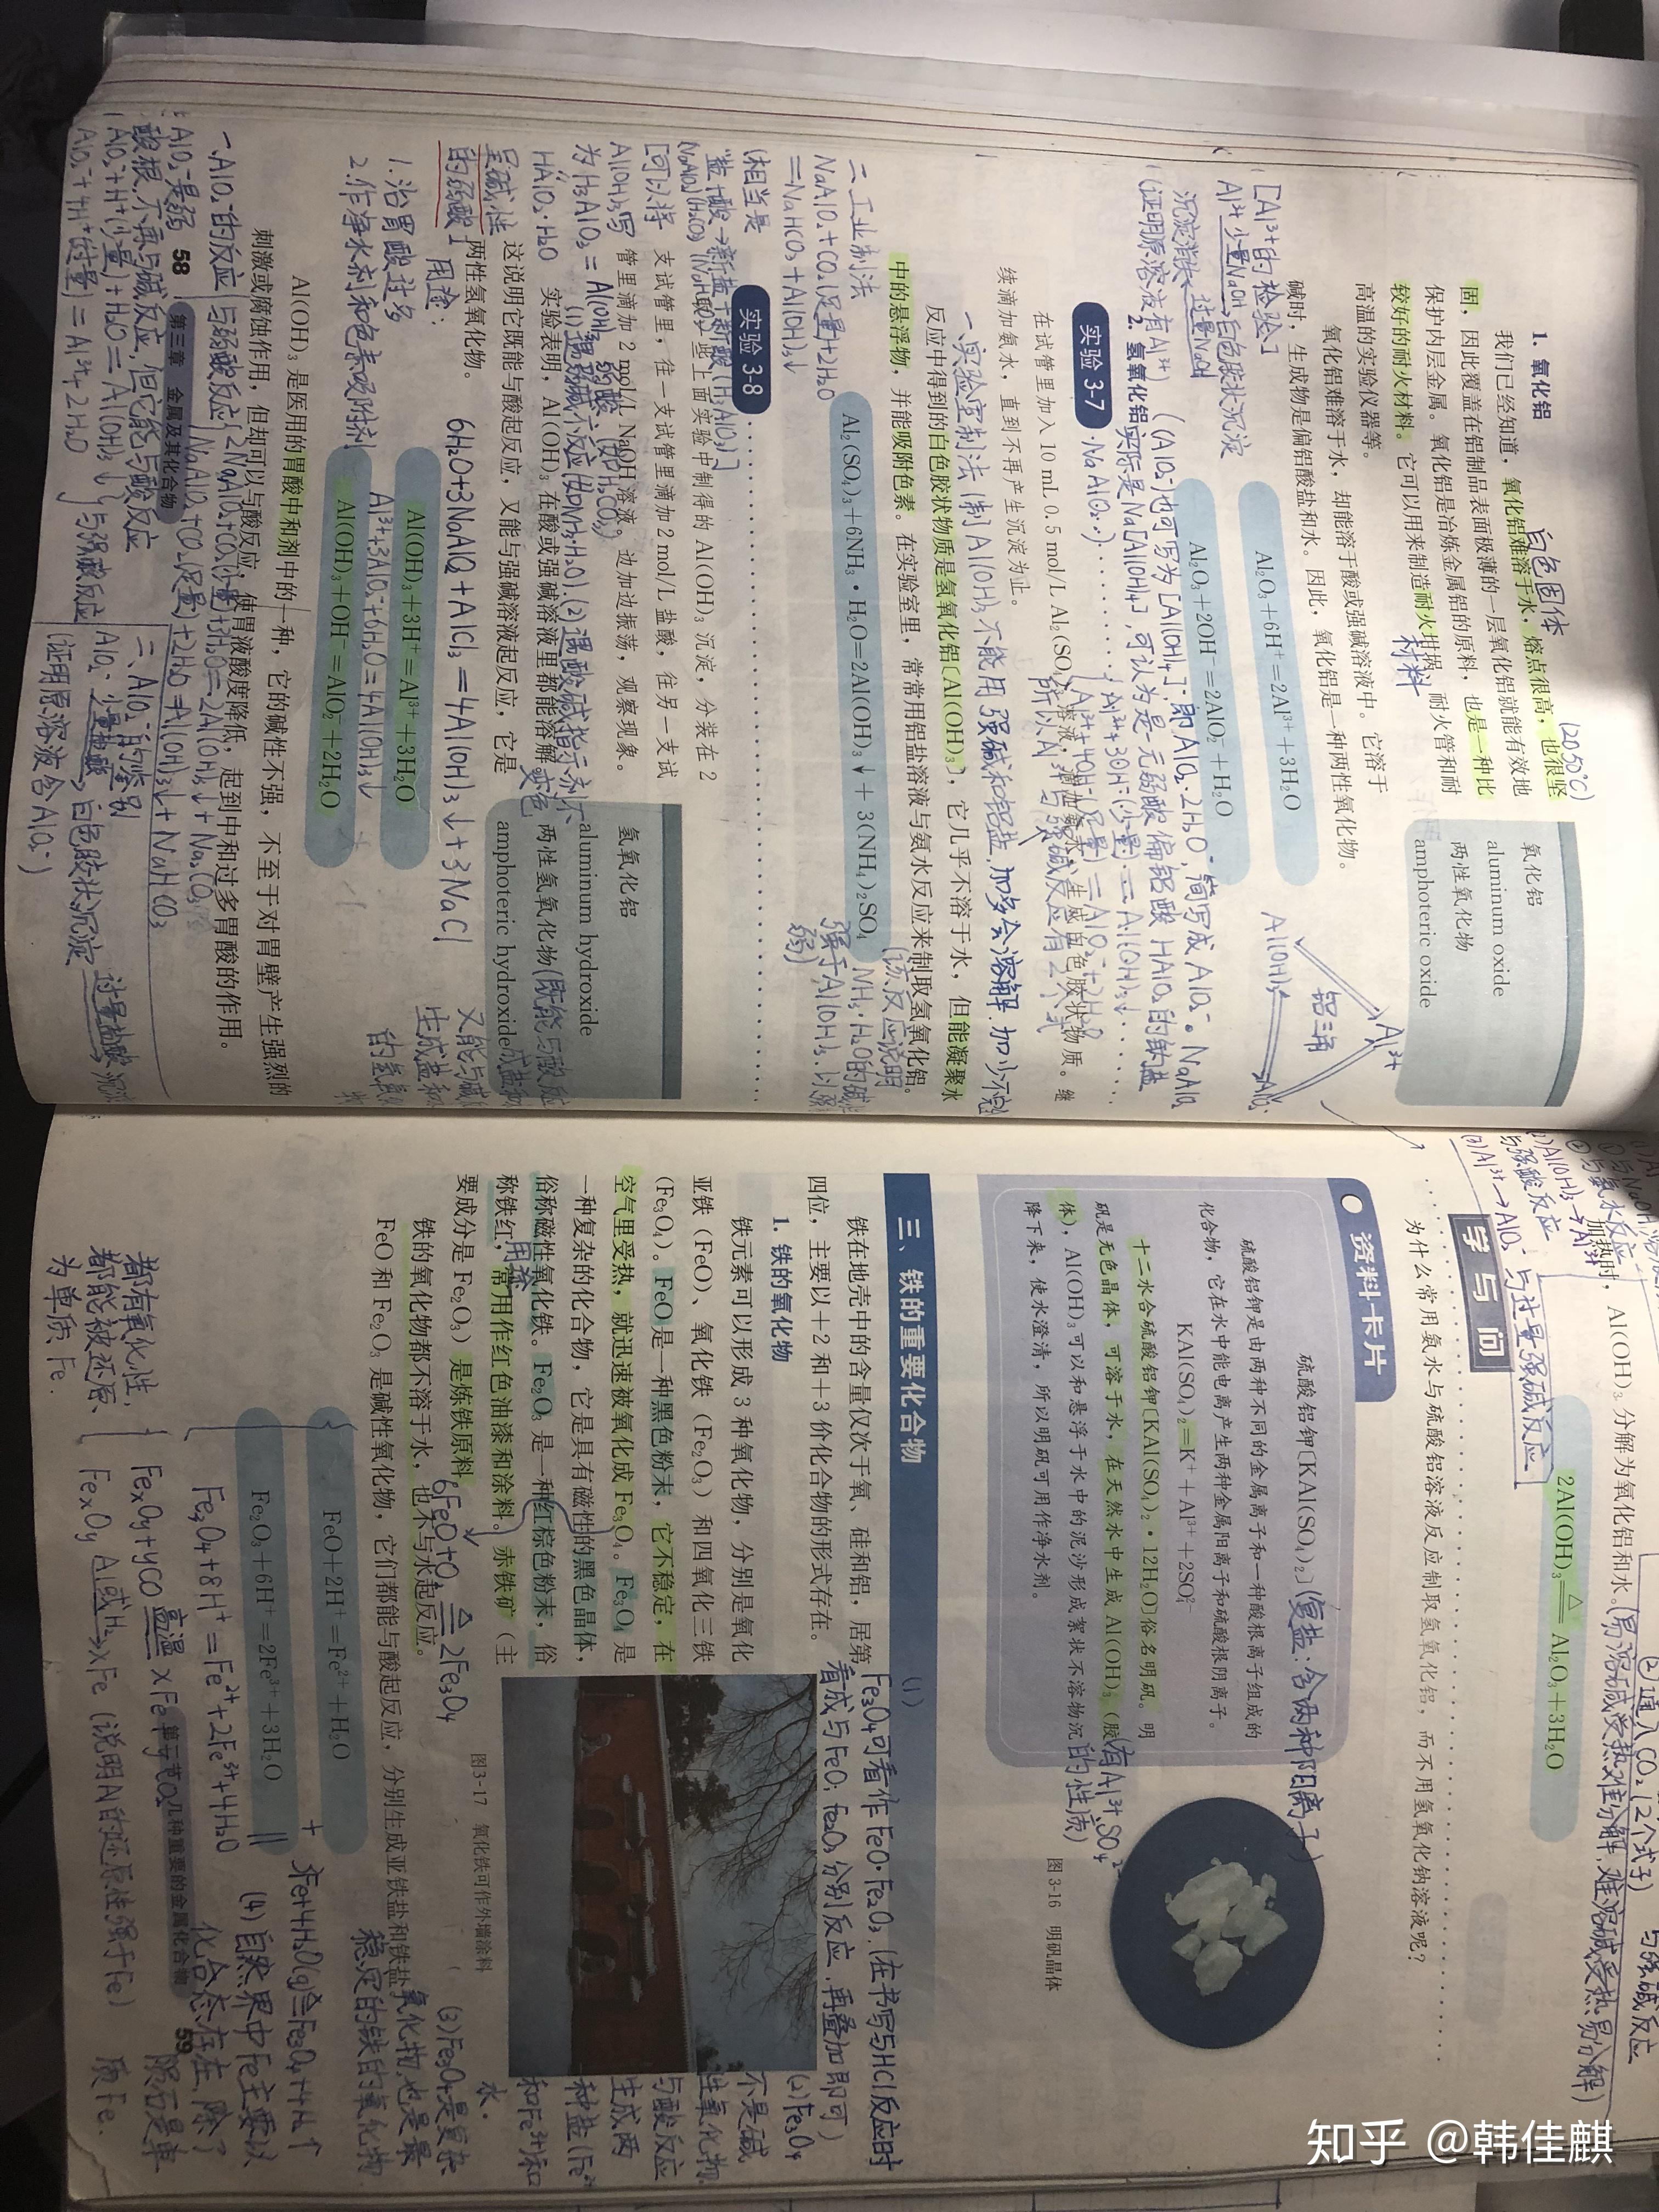 1. 氧化铝
白色固体
(2050℃)
我们已经知道，氧化铝难溶于水，熔点很高，也很坚
固，因此覆盖在铝制品表面极薄的一层氧化铝就能有效地
保护内层金属。氧化铝是冶炼金属铝的原料，也是一种比
较好的耐火材料。它可以用来制造耐火坩埚、耐火管和耐
高温的实验仪器等。
材料
氧化铝难溶于水，却能溶于酸或强碱溶液中。它溶于
碱时，生成物是偏铝酸盐和水。因此，氧化铝是一种两性氧化物。
氧化铝
aluminum oxide
两性氧化物
amphoteric oxide
Al₂O₃+6H⁺=2Al³⁺+3H₂O
Al₂O₃+2OH⁻=2AlO₂⁻+H₂O
[Al³⁺的检验]
Al³⁺ 少量NaOH 白色胶状沉淀
过量NaOH
沉淀消失
(证明原溶液有Al³⁺)
铝三角
Al³⁺
Al(OH)₃
AlO₂⁻
2. 氢氧化铝
(AlO₂⁻也可写为[Al(OH)₄]⁻,即AlO₂⁻·2H₂O,简写成AlO₂⁻。NaAlO₂
实际是Na[Al(OH)₄],可认为是一元弱酸偏铝酸HAlO₂的钠盐
·NaAlO₂·)
实验 3-7
Al³⁺+3OH⁻(少量)=Al(OH)₃↓
Al³⁺+4OH⁻(足量)=AlO₂⁻+2H₂O
在试管里加入 10 mL 0.5 mol/L Al₂(SO₄)₃溶液，滴加氨水，生成白色胶状物质。继
续滴加氨水，直到不再产生沉淀为止。
一、实验室制法(制Al(OH)₃不能用强碱和铝盐,加多会溶解,加少不完
反应中得到的白色胶状物质是氢氧化铝[Al(OH)₃]，它几乎不溶于水，但能凝聚水
中的悬浮物，并能吸附色素。在实验室里，常常用铝盐溶液与氨水反应来制取氢氧化铝。
Al₂(SO₄)₃+6NH₃·H₂O=2Al(OH)₃↓+3(NH₄)₂SO₄
(该反应说明
NH₃·H₂O的碱性
强于Al(OH)₃,以强制
弱)
二、工业制法
NaAlO₂+CO₂(足量)+2H₂O
=NaHCO₃+Al(OH)₃↓
实验 3-8
(相当是
盐+酸→新盐+新酸(H₃AlO₃)]
把上面实验中制得的 Al(OH)₃ 沉淀，分装在 2
支试管里，往一支试管里滴加 2 mol/L 盐酸，往另一支试
管里滴加 2 mol/L NaOH 溶液。边加边振荡，观察现象。
[可以将
Al(OH)₃写
为H₃AlO₃=Al(OH)₃
HAlO₂·H₂O
(1)遇弱酸(如H₂CO₃)弱碱不反应(如NH₃·H₂O).(2)遇酸碱指示剂不
变色
实验表明，Al(OH)₃ 在酸或强碱溶液里都能溶解。
这说明它既能与酸起反应，又能与强碱溶液起反应，它是
两性氢氧化物。
呈碱性
的弱酸]
氢氧化铝
aluminum hydroxide
两性氢氧化物(既能与酸反应
amphoteric hydroxide
又能与碱
生成盐和水
的氢氧
用途：
1.治胃酸过多
2.作净水剂和色素吸附剂
6H₂O+3NaAlO₂+AlCl₃=4Al(OH)₃↓+3NaCl
Al(OH)₃+3H⁺=Al³⁺+3H₂O
Al³⁺+3AlO₂⁻+6H₂O=4Al(OH)₃↓
Al(OH)₃+OH⁻=AlO₂⁻+2H₂O
Al(OH)₃ 是医用的胃酸中和剂中的一种，它的碱性不强，不至于对胃壁产生强烈的
刺激或腐蚀作用，但却可以与酸反应，使胃液酸度降低，起到中和过多胃酸的作用。
一、AlO₂⁻的反应
与弱酸反应
2NaAlO₂+CO₂(少量)+3H₂O=2Al(OH)₃↓+Na₂CO₃
NaAlO₂+CO₂(足量)+2H₂O=Al(OH)₃↓+NaHCO₃
AlO₂⁻是弱
酸根,不再与碱反应,但它能与酸反应
AlO₂⁻+H⁺(少量)+H₂O=Al(OH)₃↓
AlO₂⁻+4H⁺(过量)=Al³⁺+2H₂O
与强酸反应
二、AlO₂⁻的鉴别
AlO₂⁻ 少量盐酸 白色胶状沉淀 过量盐酸 沉淀
(证明原溶液含AlO₂⁻)
58 第三章 金属及其化合物
②通入CO₂(2个式子)
与强碱反应
加热时，Al(OH)₃ 分解为氧化铝和水。(易溶碱受热难分解,难溶碱受热易分解)
2Al(OH)₃ △ Al₂O₃+3H₂O
(2)Al(OH)₃→Al³⁺
与强酸反应
(3)Al³⁺→AlO₂⁻ 与过量强碱反应
学与问
为什么常用氨水与硫酸铝溶液反应制取氢氧化铝，而不用氢氧化钠溶液呢？
资料卡片
硫酸铝钾[KAl(SO₄)₂](复盐:含两种阳离子)
硫酸铝钾是由两种不同的金属离子和一种酸根离子组成的
化合物，它在水中能电离产生两种金属阳离子和硫酸根阴离子。
KAl(SO₄)₂=K⁺+Al³⁺+2SO₄²⁻
十二水合硫酸铝钾[KAl(SO₄)₂·12H₂O]俗名明矾。明
矾是无色晶体，可溶于水，在天然水中生成 Al(OH)₃(胶
体)，Al(OH)₃可以和悬浮于水中的泥沙形成絮状不溶物沉
降下来，使水澄清，所以明矾可用作净水剂。
(有Al³⁺、SO₄²⁻
的性质)
图 3-16 明矾晶体
三、铁的重要化合物
铁在地壳中的含量仅次于氧、硅和铝，居第
四位，主要以+2 和+3 价化合物的形式存在。
1. 铁的氧化物
铁元素可以形成 3 种氧化物，分别是氧化
亚铁（FeO）、氧化铁（Fe₂O₃）和四氧化三铁
（Fe₃O₄）。FeO 是一种黑色粉末，它不稳定，在
空气里受热，就迅速被氧化成 Fe₃O₄。Fe₃O₄ 是
一种复杂的化合物，它是具有磁性的黑色晶体，
俗称磁性氧化铁。Fe₂O₃ 是一种红棕色粉末，俗
称铁红，常用作红色油漆和涂料。赤铁矿（主
要成分是 Fe₂O₃）是炼铁原料。
用途
6FeO+O₂ △ 2Fe₃O₄
铁的氧化物都不溶于水，也不与水起反应。
FeO 和 Fe₂O₃ 是碱性氧化物，它们都能与酸起反应，分别生成亚铁盐和铁盐。
FeO+2H⁺=Fe²⁺+H₂O
Fe₂O₃+6H⁺=2Fe³⁺+3H₂O
Fe₃O₄+8H⁺=Fe²⁺+2Fe³⁺+4H₂O
(1)
Fe₃O₄可看作FeO·Fe₂O₃.(在书写与HCl反应时
看成与FeO、Fe₂O₃分别反应,再叠加即可)
(2)Fe₃O₄
不是碱
性氧化物.
与酸反应
生成两
种盐(Fe²⁺
和Fe³⁺)和
水.
图3-17 氧化铁可作外墙涂料
(3)Fe₃O₄是复杂
氧化物,也是最
稳定的铁的氧化物
3Fe+4H₂O(g) △ Fe₃O₄+4H₂↑
(4)自然界中Fe主要以
化合态存在,除了
陨石是单
质Fe.
都有氧化性,
都能被还原
为单质Fe.
FeₓOy+yCO 高温 xFe+yCO₂
FeₓOy Al或H₂ xFe (说明Al的还原性强于Fe)
第二节 几种重要的金属化合物 59
知乎 @韩佳麒